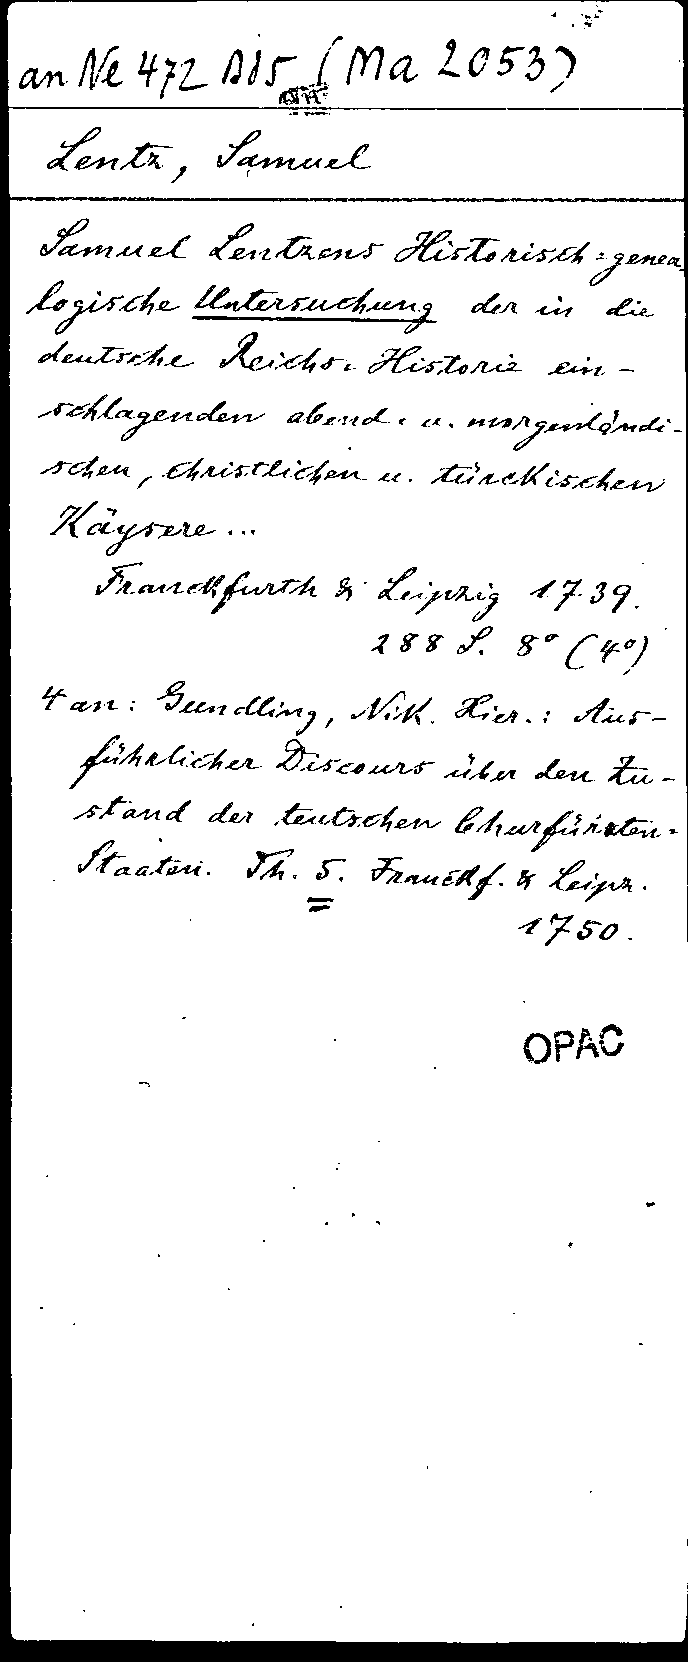 an Ne 472 Bd5 (Ma 2053)
Lentz, Samuel
Samuel Lentzens Historisch=genea-
logische Untersuchung der in die
deutsche Reichs-Historie ein-
schlagenden abend- u. morgenländi-
schen, christlichen u. türckischen
Käysere...
Franckfurth & Leipzig 1739.
288 S. 8° (4°)
4 an: Gundling, Nik. Hier.: Aus-
führlicher Discours über den Zu-
stand der teutschen Churfürsten-
Staaten. Th. 5. Franckf. & Leipz.
1750.
OPAC